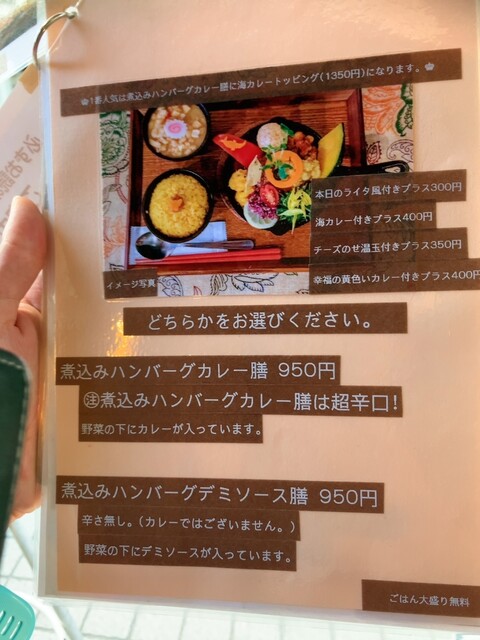 ♚1番人気は煮込みハンバーグカレー膳に海カレートッピング(1350円)になります。♚
本日のライタ風付きプラス300円
海カレー付きプラス400円
チーズのせ温玉付きプラス350円
幸福の黄色いカレー付きプラス400円
イメージ写真
どちらかをお選びください。
煮込みハンバーグカレー膳 950円
㊟煮込みハンバーグカレー膳は超辛口!
野菜の下にカレーが入っています。
煮込みハンバーグデミソース膳 950円
辛さ無し。(カレーではございません。)
野菜の下にデミソースが入っています。
ごはん大盛り無料